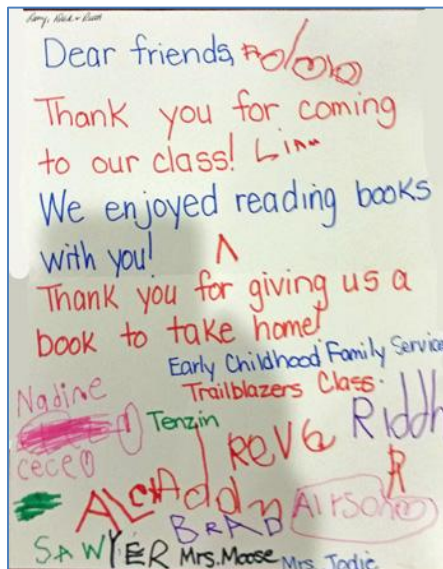 Dear friends,
Thank you for coming
to our class!
We enjoyed reading books
with you!
Thank you for giving us a
book to take home!
Early Childhood Family Service
Trailblazers Class
Nadine
Tenzin
Reva
Riddh
cece
Addn
BRAD
SAWYER Mrs. Moose Mrs. Jodie